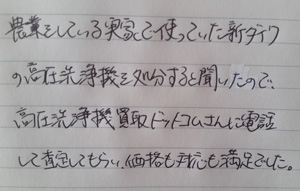 農業をしている実家で使っていた新ダイワ
の高圧洗浄機を処分すると聞いたので、
高圧洗浄機買取ドットコムさんに電話
して査定してもらい、価格も対応も満足でした。